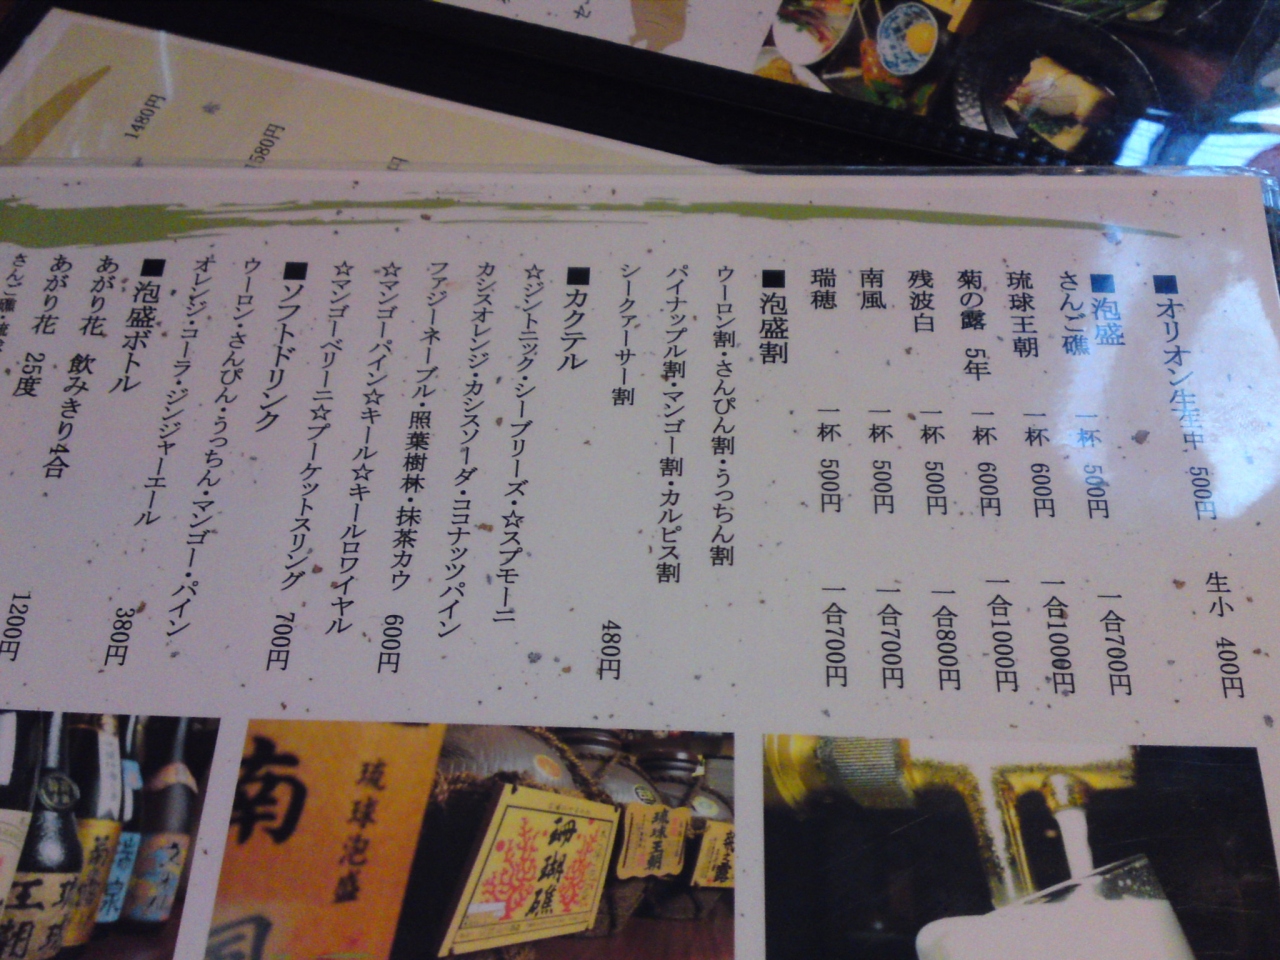 ■オリオン生生中 500円 生小 400円
■泡盛
さんご礁 一杯 500円 一合700円
琉球王朝 一杯 600円 一合1000円
菊の露 5年 一杯 600円 一合1000円
残波白 一杯 500円 一合800円
南風 一杯 500円 一合700円
瑞穂 一杯 500円 一合700円
■泡盛割
ウーロン割・さんぴん割・うっちん割
パイナップル割・マンゴー割・カルピス割
シークァーサー割 480円
■カクテル
☆ジントニック・シーブリーズ・☆スプモーニ
カシスオレンジ・カシスソーダ・ココナッツパイン
ファジーネーブル・照葉樹林・抹茶カウ 600円
☆マンゴーパイン☆キール☆キールロワイヤル
☆マンゴーベリーニ☆プーケットスリング 700円
■ソフトドリンク
ウーロン・さんぴん・うっちん・マンゴー・パイン
オレンジ・コーラ・ジンジャーエール 380円
■泡盛ボトル
あがり花 飲みきり4合 1200円
あがり花 25度
さんご礁
1480円
1580円
円
琉球泡盛
南
珊瑚礁
琉球王朝